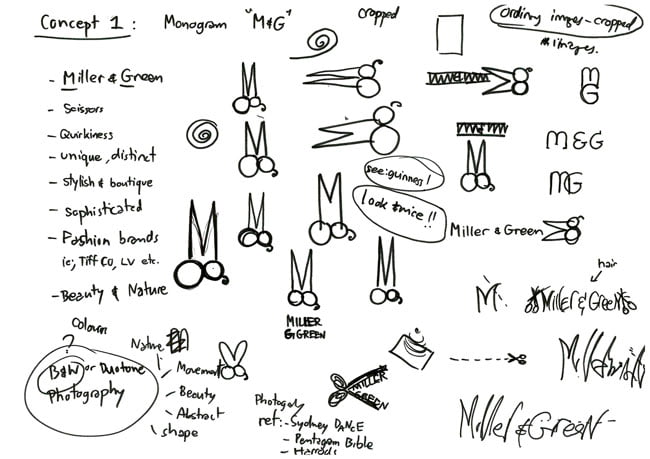 Concept 1 :
Monogram "M&G"
cropped
Ordinary images - cropped
images.
- Miller & Green
- Scissors
- Quirkiness
- unique, distinct
- stylish & boutique
- Sophisticated
- Fashion brands
ie; Tiff Co, LV etc.
- Beauty & Nature
M
G
M & G
MG
see: guinness!
look twice!!
Miller & Green
MILLER
& GREEN
hair
M
Miller & Green
Colour
?
B&W or Duotone
Photography
Nature
Movement
- Beauty
- Abstract
shape
MILLER
GREEN
Photography
ref: - Sydney DANCE
- Pentagon Bible
- Harrods
Miller & GREEN